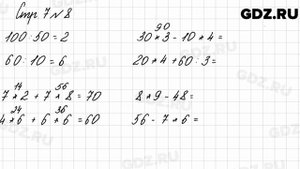 Стр. 7 № 8
GDZ.RU
100 : 50 = 2
90
30 * 3 - 10 * 4 =
60 : 10 = 6
20 * 4 + 60 : 3 =
14 56
7 * 2 + 7 * 8 = 70
8 * 9 - 48 =
24 36
4 * 6 + 6 * 6 = 60
56 - 7 * 6 =
GDZ.RU